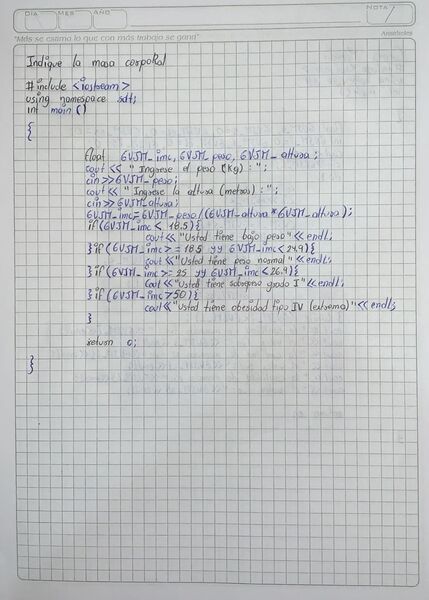 DIA MES AÑO
NOTA
"Más se estima lo que con más trabajo se gana"
Indique la masa corporal
#include <iostream>
using namespace sdt;
int main ()
{
float GVJM_imc, GVJM_peso, GVJM_altura;
cout << "Ingrese el peso (Kg) : ";
cin >> GVJM_peso;
cout << "Ingrese la altura (metros) : ";
cin >> GVJM_altura;
GVJM_imc= GVJM_peso/(GVJM_altura * GVJM_altura);
if(GVJM_imc < 18.5){
cout << "Usted tiene bajo peso" << endl;
} if (GVJM_imc >= 18.5 yy GVJM_imc < 24.9){
cout << "Usted tiene peso normal" << endl;
} if (GVJM_imc >= 25 yy GVJM_imc < 26.9){
cout << "Usted tiene sobrepeso grado I" << endl;
} if (GVJM_imc > 50){
cout << "Usted tiene obesidad tipo IV (extrema)" << endl;
}
return 0;
}